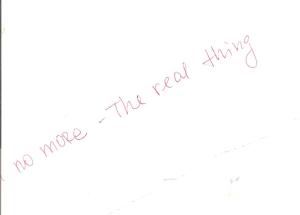 no more - The real thing